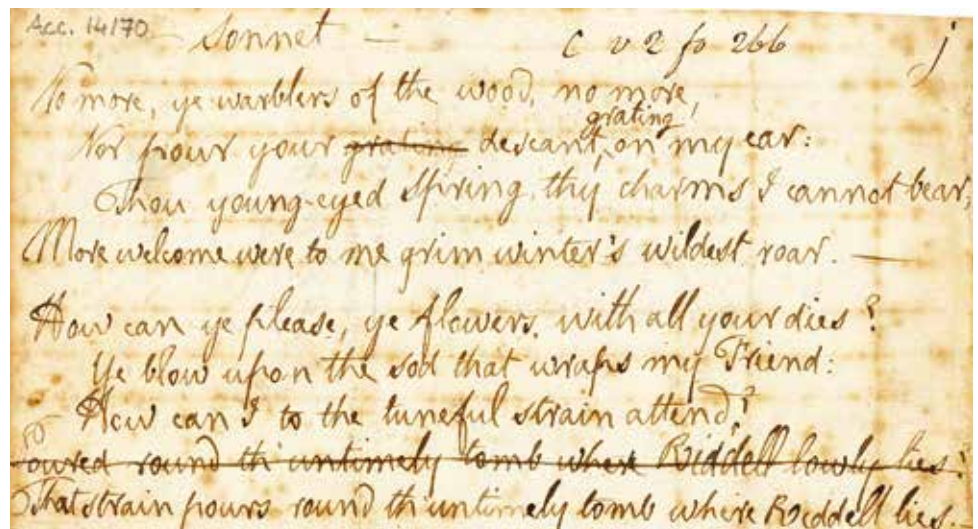 Acc. 14170 — Sonnet — C v 2 fo 266 j
No more, ye warblers of the wood, no more,
grating
Nor pour your grating descant, on my ear:
Thou young-eyed Spring, thy charms I cannot bear,
More welcome were to me grim winter's wildest roar. —
How can ye please, ye flowers, with all your dies?
Ye blow upon the sod that wraps my Friend:
How can I to the tuneful strain attend?
oured round th' untimely tomb where Riddell lowly lies.
That strain pours round th' untimely tomb where Riddell lies.